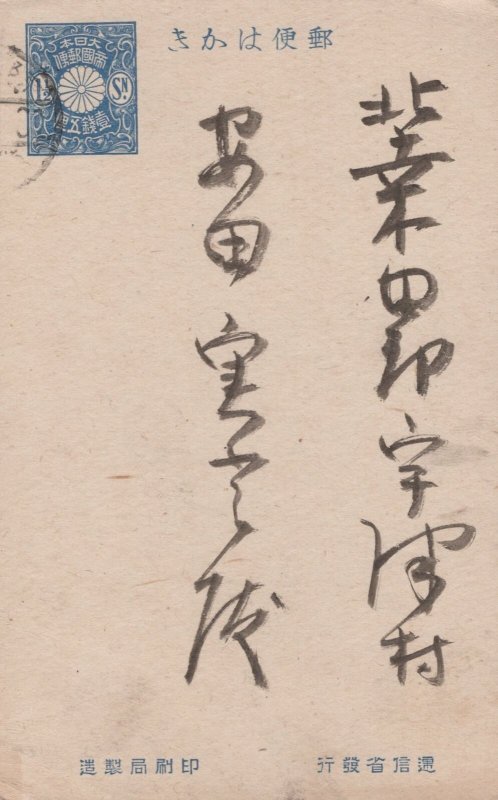 郵便はかき
大日本
帝國郵便
1½ SN.
壹錢五厘
北桑田郡宇津村
安田 殿
遞信省發行
印刷局製造